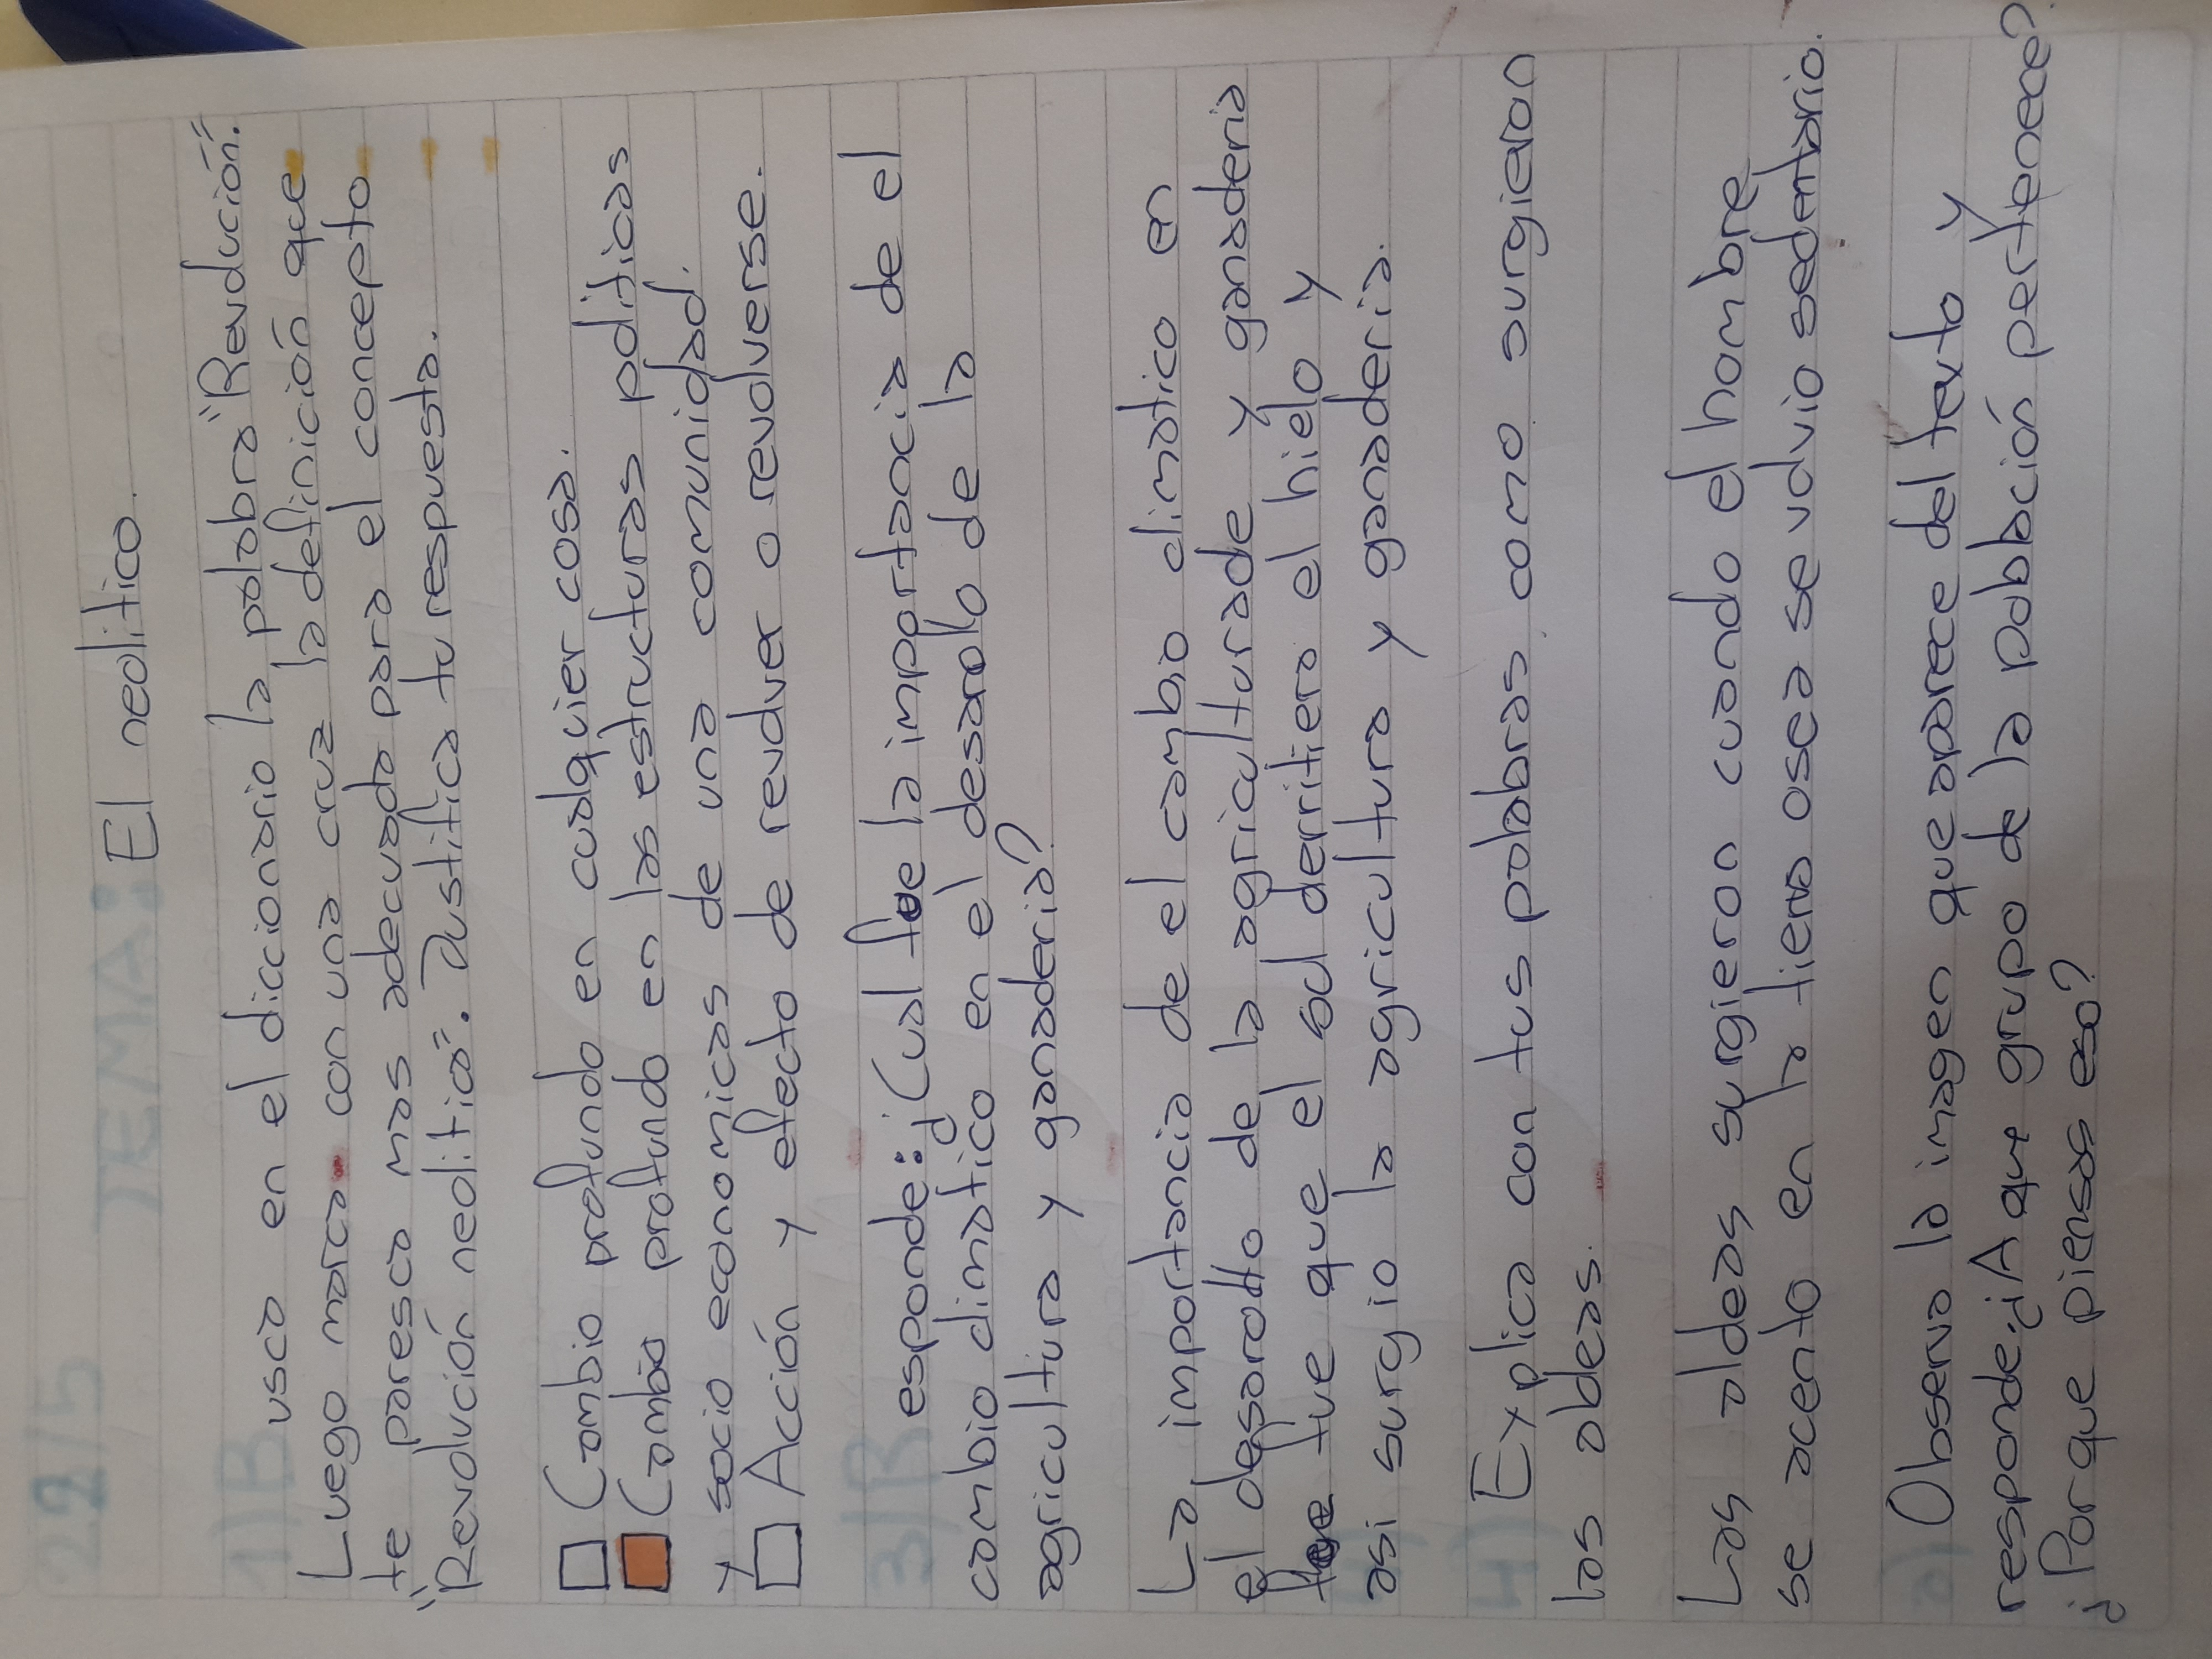 22/5
TEMA: El neolitico.
1) Busca en el diccionario la palabra "Revolución".
Luego marca con una cruz la definición que
te paresca mas adecuada para el concepto
"Revolución neolitica". Justifica tu respuesta.
Cambio profundo en cualquier cosa.
Cambio profundo en las estructuras politicas
y socio economicas de una comunidad.
Acción y efecto de revolver o revolverse.
3) Responde: ¿Cual fue la importancia de el
cambio climatico en el desarollo de la
agricultura y ganaderia?
La importancia de el cambio climatico en
el desarollo de la agriculturade y ganaderia
fue que el sol derritiera el hielo y
asi surgio la agricultura y ganaderia.
4) Explica con tus palabras como surgieron
las aldeas.
Las aldeas surgieron cuando el hombre
se acento en la tierra osea se volvio sedentario.
a) Observa la imagen que aparece del texto y
responde: ¿A que grupo de la población pertenece?
¿Por que piensas eso?